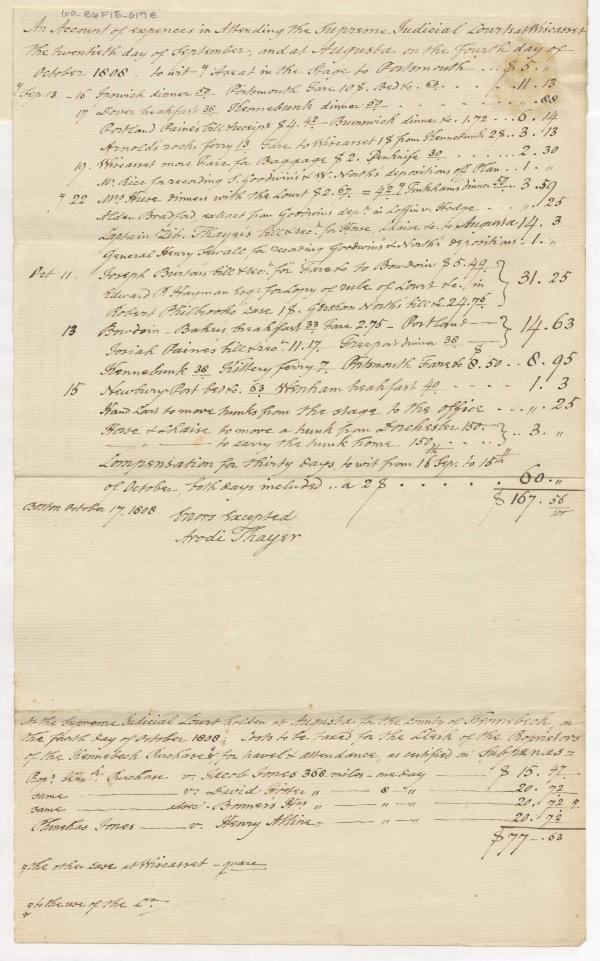 100-86F1E-0198
An Account of expences in Attending the Supreme Judicial Courts at Wiscasset
the twentieth day of September, and at Augusta on the Fourth day of
October 1808. to wit a Seat in the Stage to Portsmouth $ 5. "
Sep 13 - 16 Ipswich dinner 50 Portsmouth Fare 108 Bed &c. 63 .11.13
17 Dover breakfast 38 Kennebunk dinner 50 " .88
Portland Paines bill & receipt $4.42 - Brunswick dinner &c. 1.72 6.14
Arnolds rock ferry 13 Fare to Wiscasset 18 from Kennebunk 28 3.13
19. Wiscasset more Fair for Baggage $2. Penknife 30 2.30
Mr. Rice for recording S. Goodwin's & W. North's depositions of Plan 1. "
" 22 Mrs. Huse dinners with the Court $2.67 = 42 Tinkhams dinner 50 3.59
Alden Bradford, extract from Goodwins depn. in Coffin v. Hodge " .25
Captain Zib. Thayer's bill & rec. for Horse, Chaise &c. to Augusta 14.3
General Henry Sewall for recording Goodwin's & North's depositions 1. "
Oct 11. Joseph Burtons bill & rec. for Fare &c to Bowdoin $5.49
Edward P. Hayman Esqr. for Copy of rule of Court &c., in
Robert Philbrooks Case 18. Gershom Norths bill &c. 24.76 31.25
13 Bowdoin - Bakers breakfast 33 Fare 2.75 - Portland
Josiah Paine's bill & rec. 11.17 Freeport dinner 38 14.63
Kennebunk 38 Kittery ferry 7 Portsmouth Fare &c $8.50 8.95
15 Newbury Port bed &c. 63 Wenham breakfast 40 1.3
Hand Cart to move trunks from the stage to the office " .25
Horse & Chaise to move a trunk from Dorchester 150
" to carry the trunk home 150 3. "
Compensation for thirty days to wit from 16th Sep. to 15th
of October, both days included . . a 2$ 60. "
$ 167.56
Boston October 17, 1808 Errors Excepted
Arodi Thayer
At the Supreme Judicial Court holden at Augusta for the County of Kennebeck, on
the fourth day of October 1808. Costs to be taxed for the Clerk of the Proprietors
of the Kennebeck Purchase for travel & attendance, as certified on Subpenas =
Propr. Kenn. Purchase v. Jacob Jones 368 miles - one day $ 15.47
same v. David " 8 " 20.72
same Bonners " " 20.72
Jones v. Henry Alline " " 20.72
$ 77.63
the other Case at Wiscasset - quare
to the use of the Co.